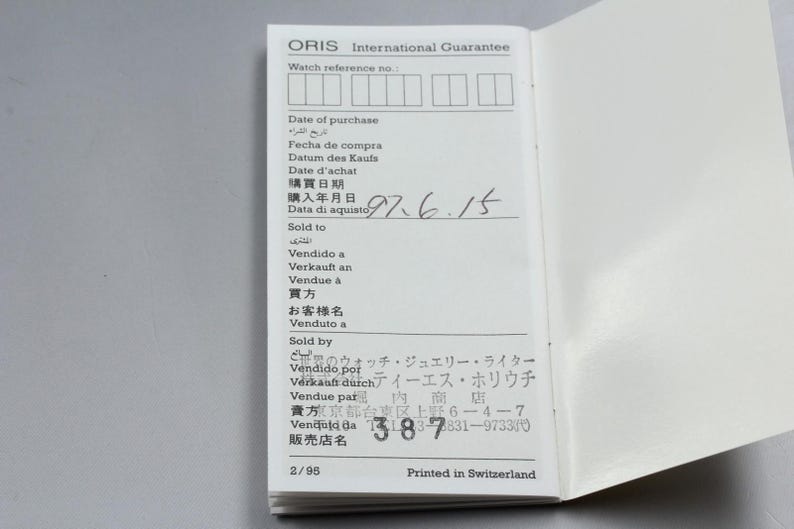 ORIS International Guarantee
Watch reference no.:
Date of purchase
تاريخ الشراء
Fecha de compra
Datum des Kaufs
Date d'achat
購買日期
購入年月日
Data di aquisto 97.6.15
Sold to
المشترى
Vendido a
Verkauft an
Vendue à
買方
お客様名
Venduto a
Sold by
世界のウォッチ・ジュエリー・ライター
Vendido por
株式会社 ティーエス・ホリウチ
Verkauft durch
堀内商店
Vendue par
東京都台東区上野6-4-7
賣方
3831-9733(代)
Venduto da 387
販売店名
2/95 Printed in Switzerland